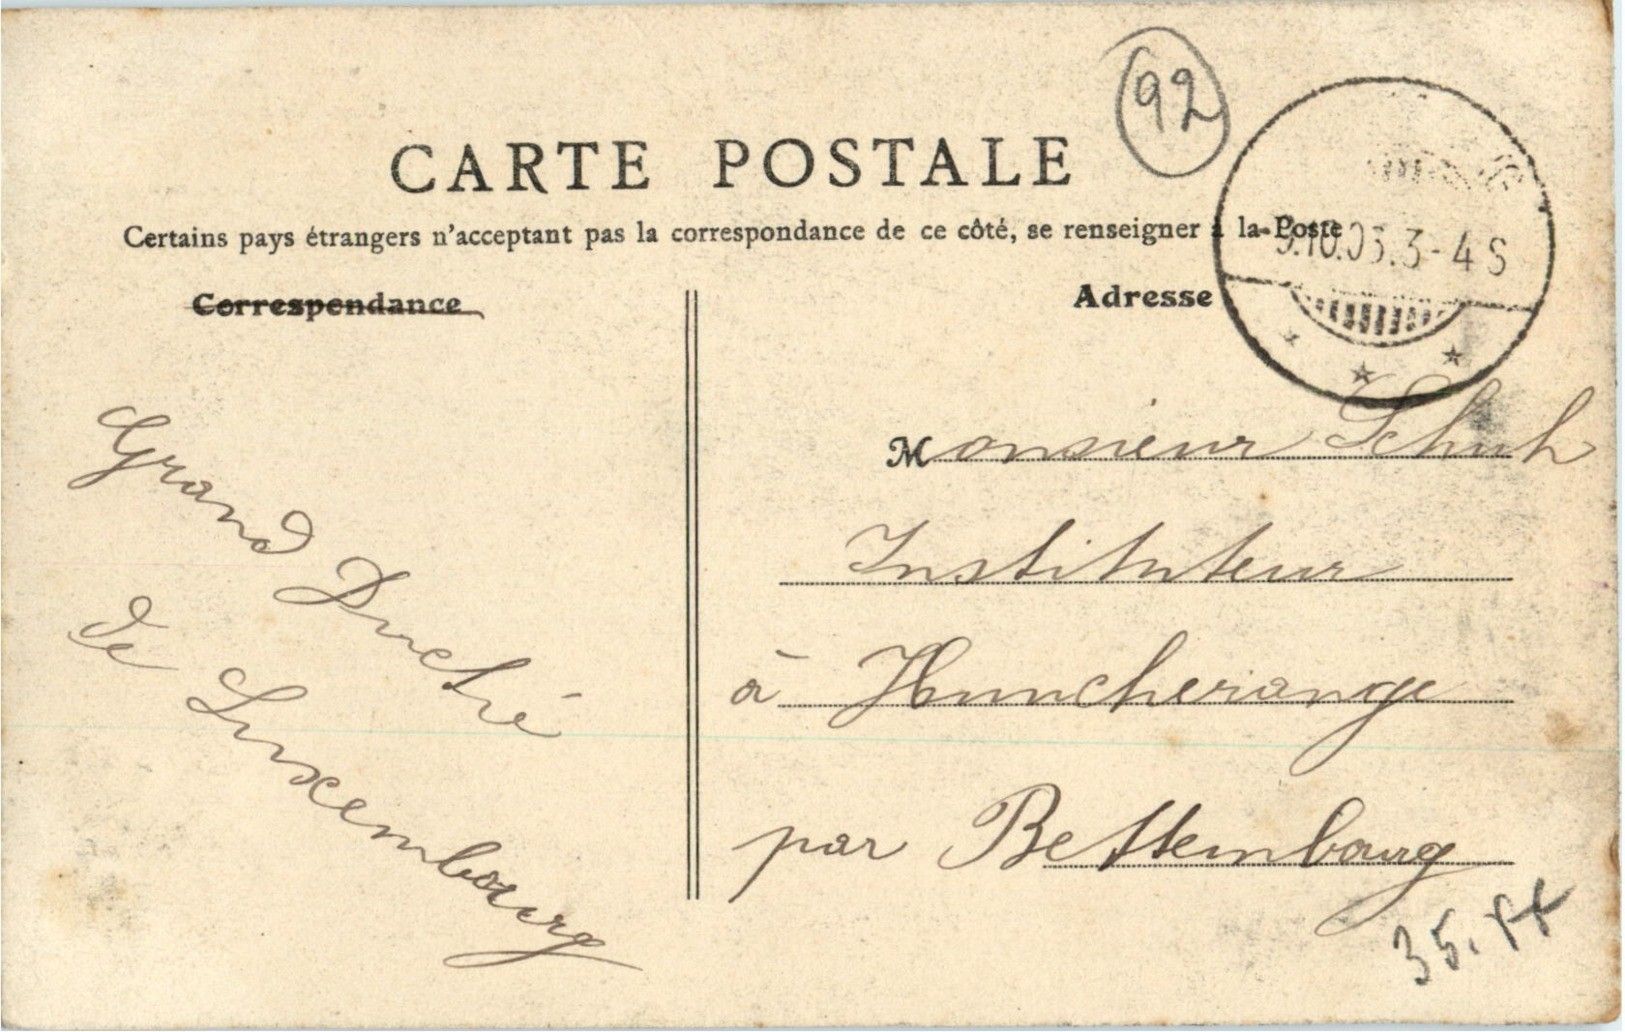 92
CARTE POSTALE
Certains pays étrangers n'acceptant pas la correspondance de ce côté, se renseigner à la Poste
Correspondance
Adresse
3-4 S
Monsieur Schuh
Instituteur
à Huncherange
par Bettembourg
Grand Duché
de Luxembourg
35.